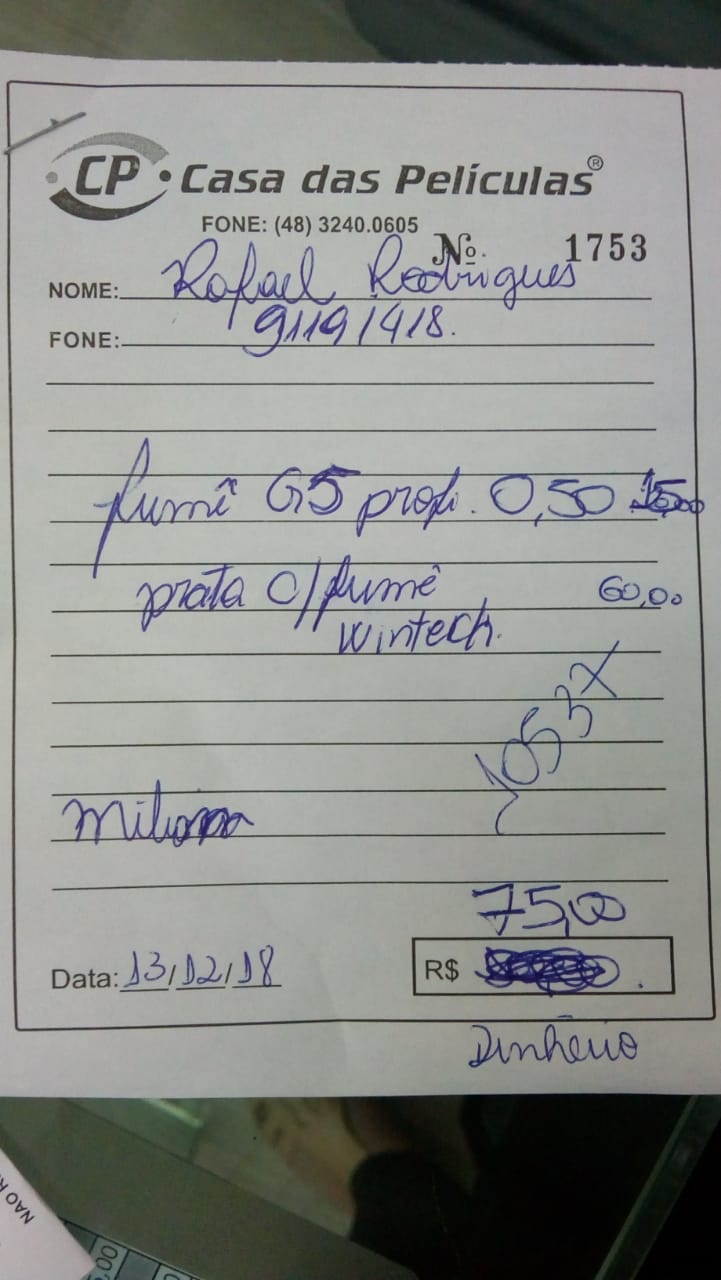 CP Casa das Películas®
FONE: (48) 3240.0605
Nº 1753
NOME: Rafael Rodrigues
FONE: 91191418.
fumê G5 prof. 0,50 15,00
prata c/ fumê 60,00
Wintech.
10537
75,00
Data: 13/12/18 R$
Dinheiro
NAO